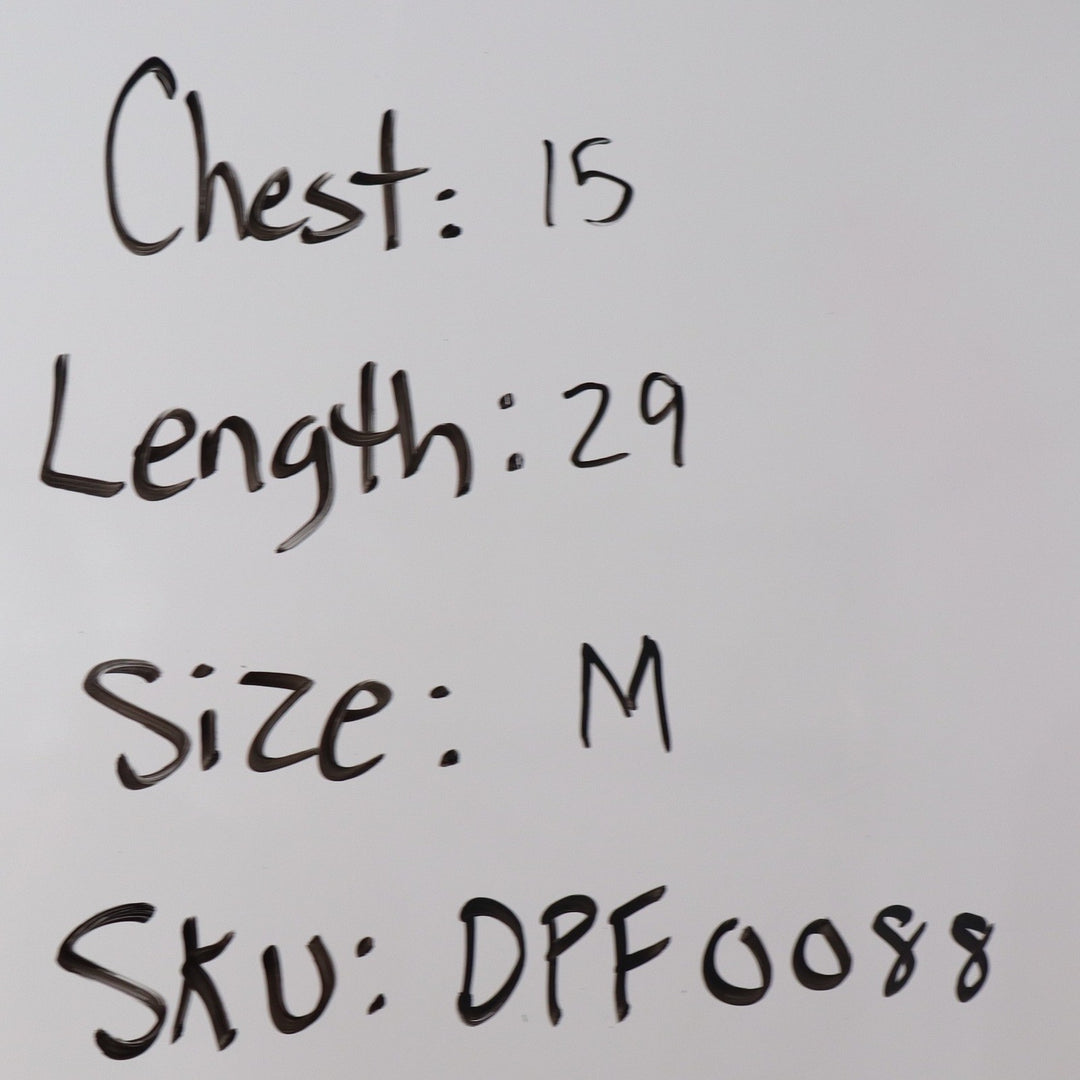 Chest: 15
Length: 29
Size: M
Sku: DPF0088